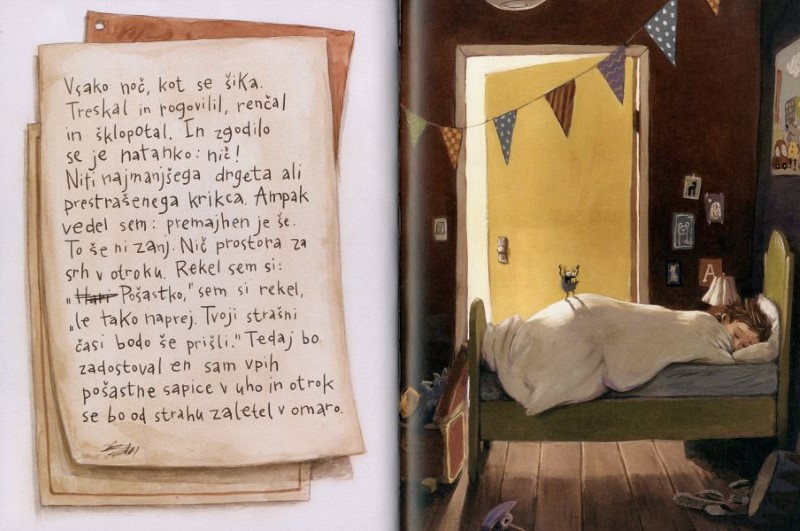 Vsako noč, kot se šika.
Treskal in rogovilil, renčal
in šklopotal. In zgodilo
se je natanko: nič!
Niti najmanjšega drgeta ali
prestrašenega krikca. Ampak
vedel sem: premajhen je še.
To še ni zanj. Nič prostora za
srh v otroku. Rekel sem si:
„Hari Pošastko," sem si rekel,
„le tako naprej. Tvoji strašni
časi bodo še prišli." Tedaj bo
zadostoval en sam vpih
pošastne sapice v uho in otrok
se bo od strahu zaletel v omaro.
A